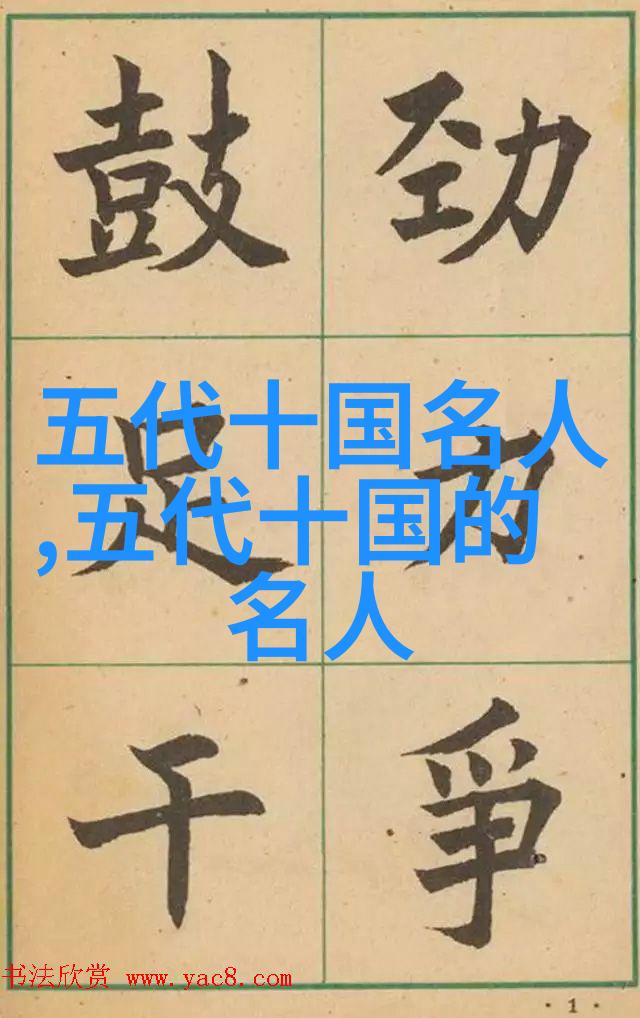 鼓足干
劲力爭
五代十国名人
,五代十国的
名人
书法欣赏 www.yac8.com
·1·